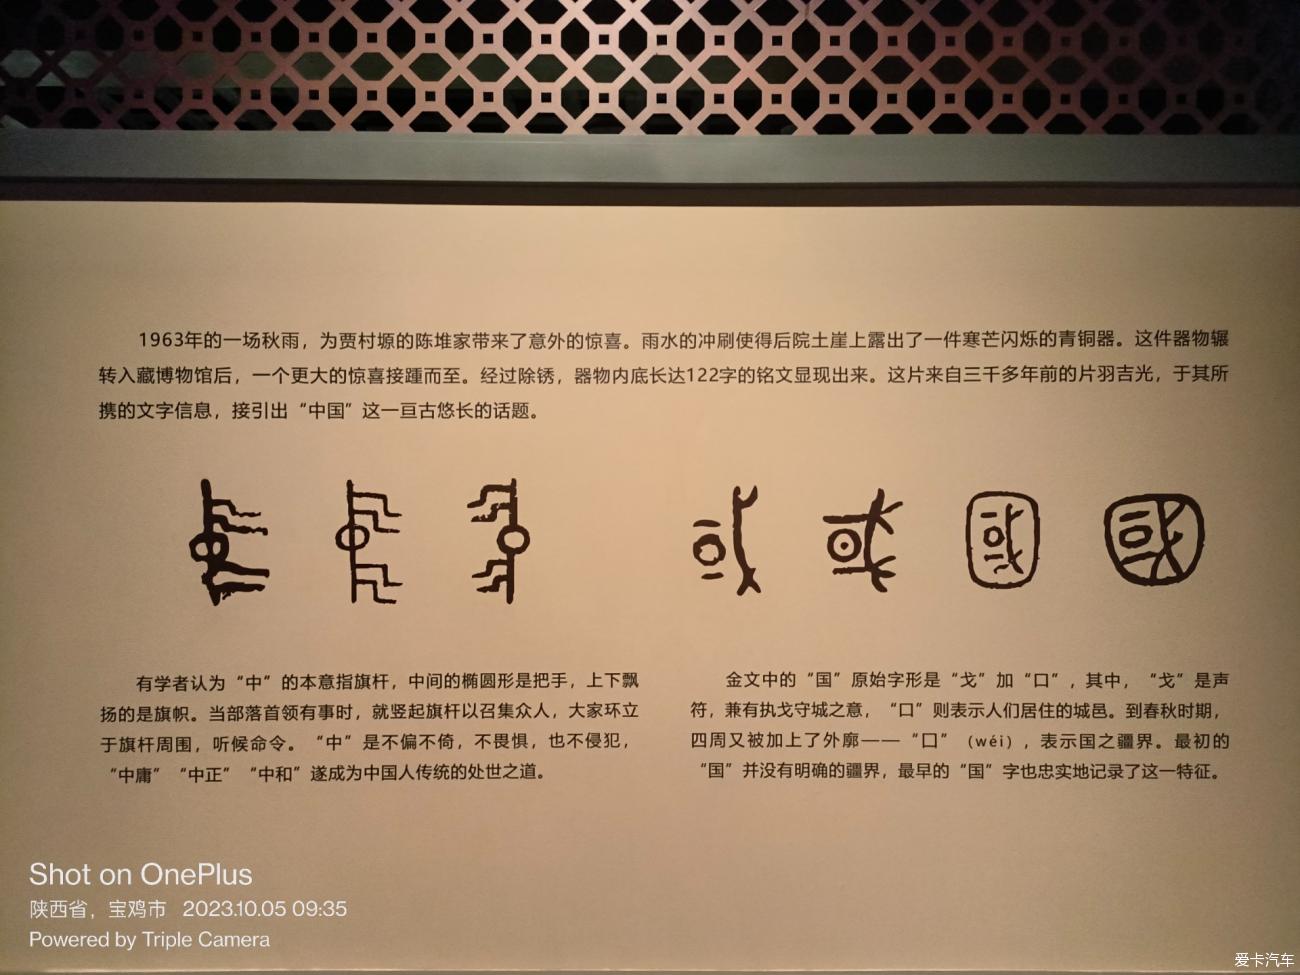 1963年的一场秋雨，为贾村塬的陈堆家带来了意外的惊喜。雨水的冲刷使得后院土崖上露出了一件寒芒闪烁的青铜器。这件器物辗
转入藏博物馆后，一个更大的惊喜接踵而至。经过除锈，器物内底长达122字的铭文显现出来。这片来自三千多年前的片羽吉光，于其所
携的文字信息，接引出“中国”这一亘古悠长的话题。
有学者认为“中”的本意指旗杆，中间的椭圆形是把手，上下飘
扬的是旗帜。当部落首领有事时，就竖起旗杆以召集众人，大家环立
于旗杆周围，听候命令。“中”是不偏不倚，不畏惧，也不侵犯，
“中庸”“中正”“中和”遂成为中国人传统的处世之道。
金文中的“国”原始字形是“戈”加“口”，其中，“戈”是声
符，兼有执戈守城之意，“口”则表示人们居住的城邑。到春秋时期，
四周又被加上了外廓——“囗”（wéi），表示国之疆界。最初的
“国”并没有明确的疆界，最早的“国”字也忠实地记录了这一特征。
Shot on OnePlus
陕西省，宝鸡市 2023.10.05 09:35
Powered by Triple Camera
爱卡汽车